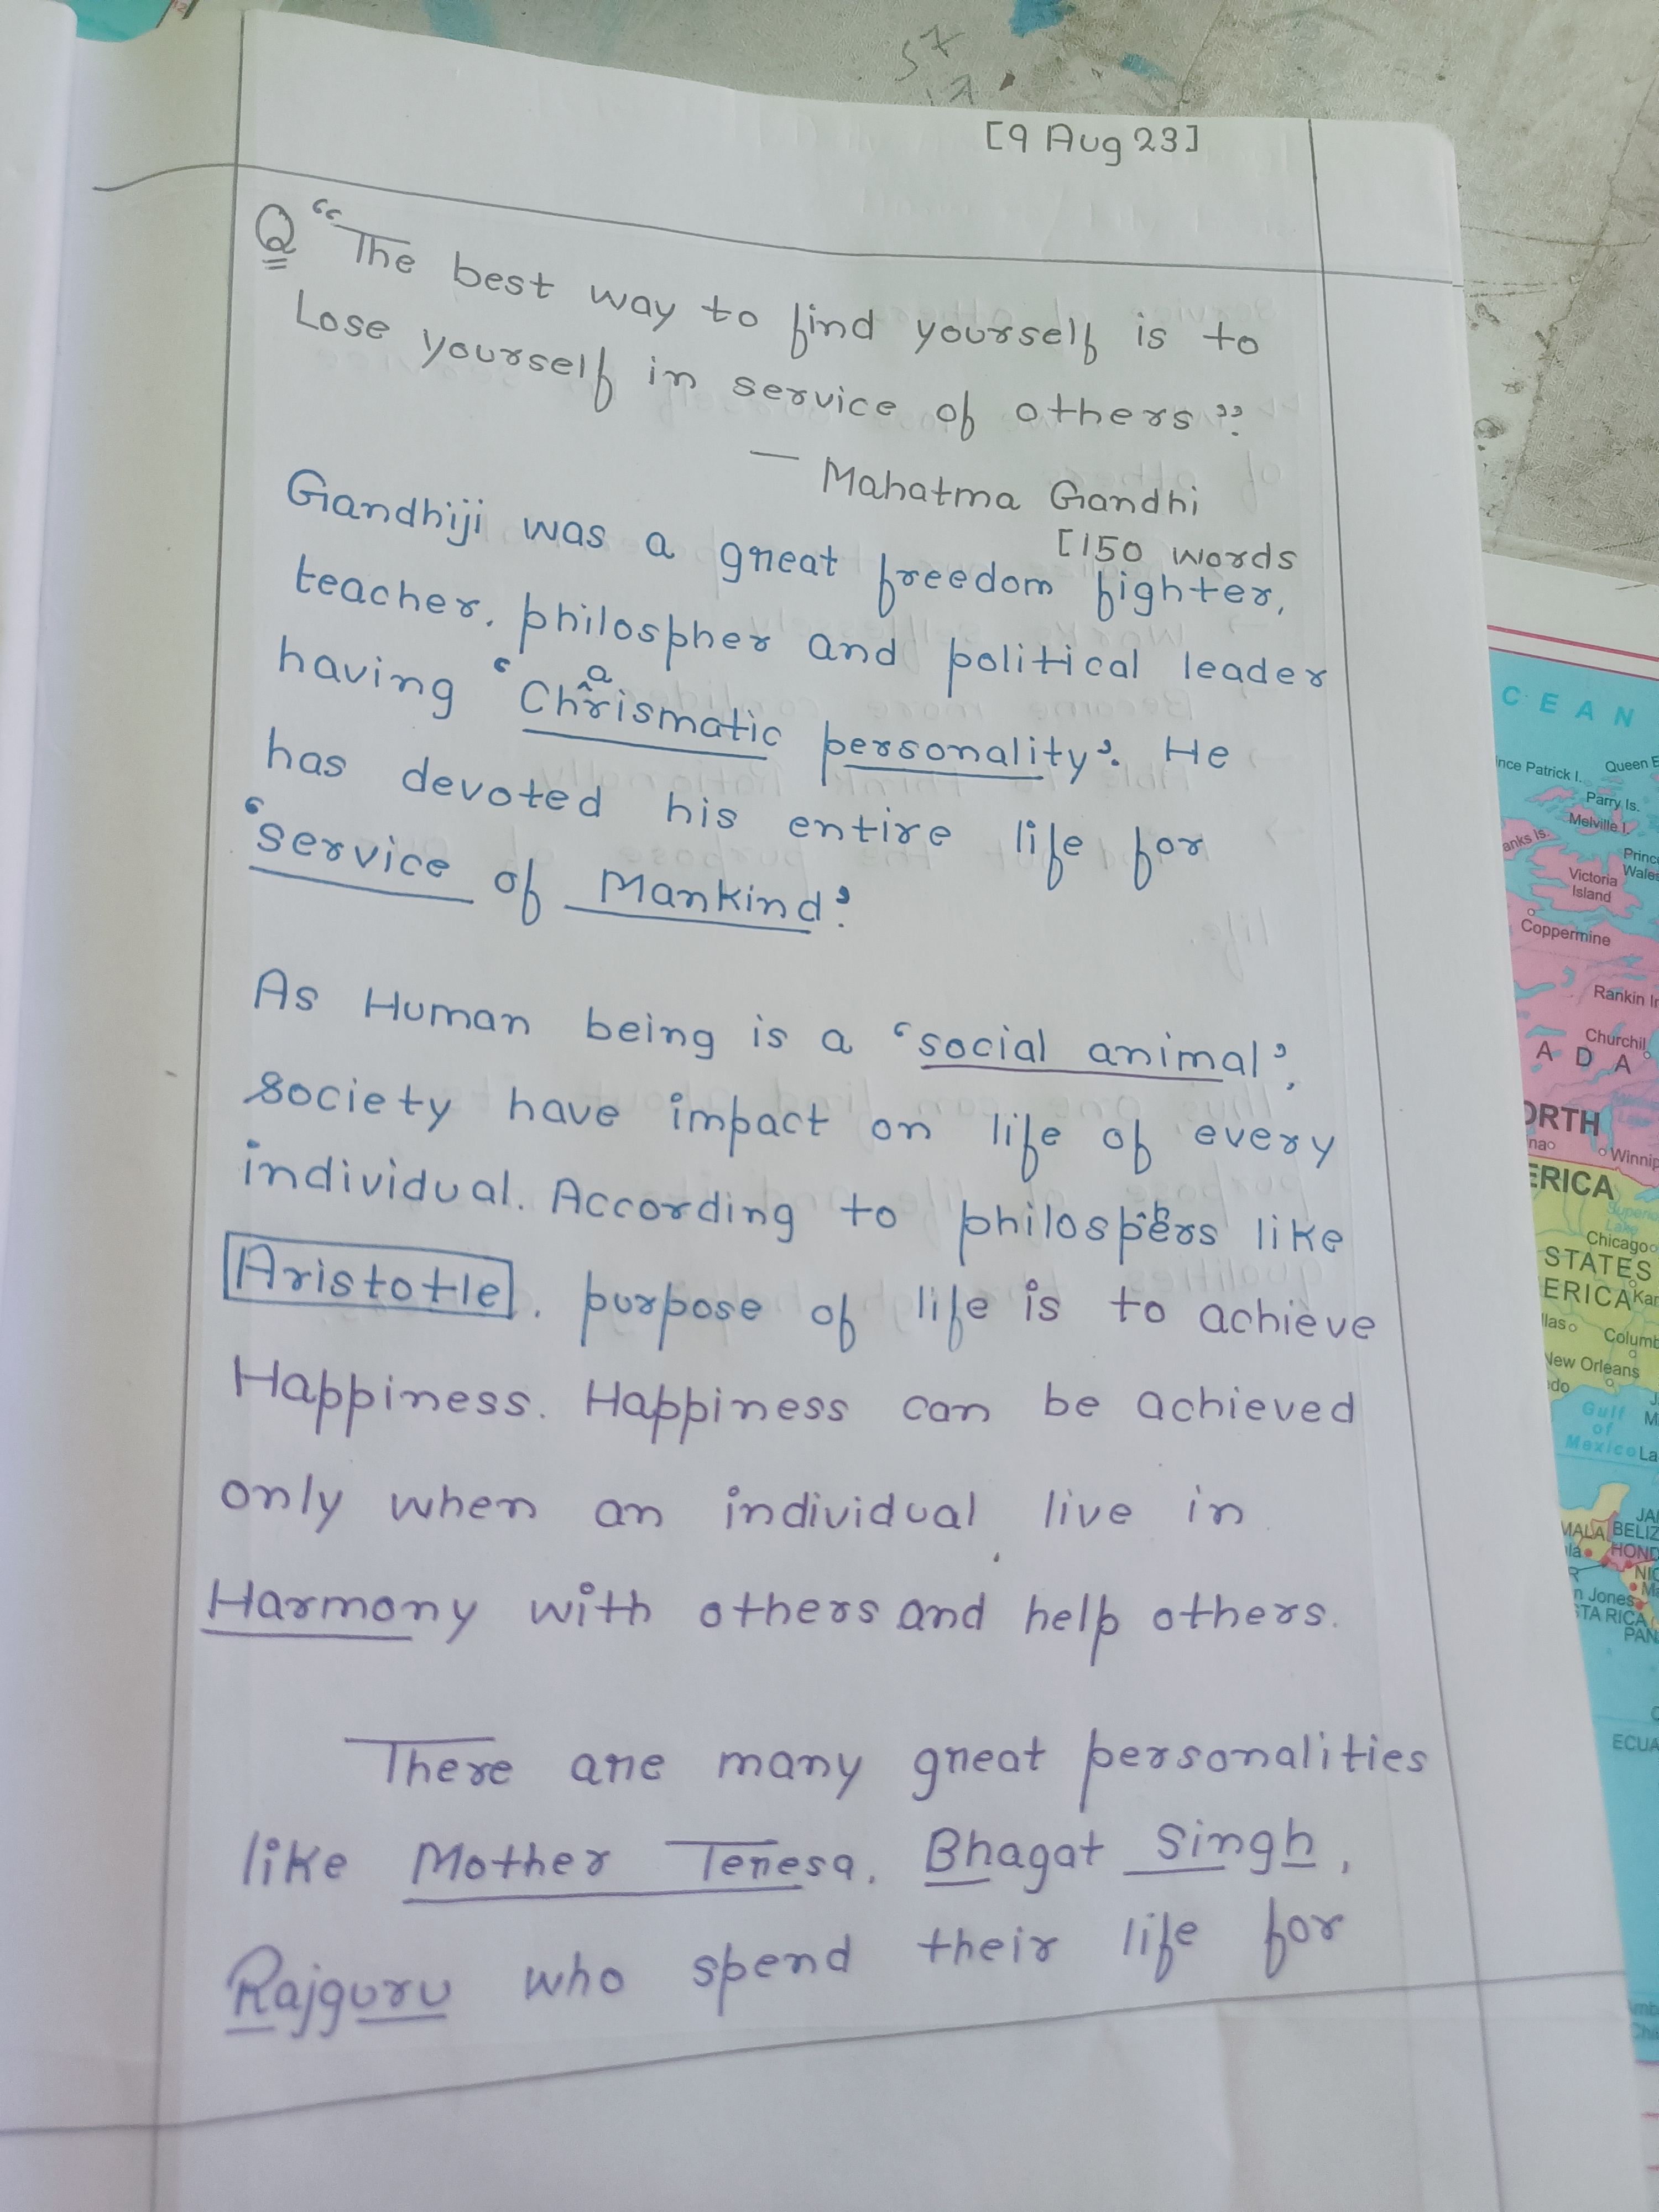 [9 Aug 23]
Q "The best way to find yourself is to
Lose yourself in service of others".
— Mahatma Gandhi
[150 words
Gandhiji was a great freedom fighter,
teacher, philospher and political leader
having 'Charismatic personality'. He
has devoted his entire life for
'service of Mankind'.
As Human being is a 'social animal',
society have impact on life of every
individual. According to philosphers like
Aristotle, purpose of life is to achieve
Happiness. Happiness can be achieved
only when an individual live in
Harmony with others and help others.
There are many great personalities
like Mother Teresa, Bhagat Singh,
Rajguru who spend their life for
CEAN
Queen E
Parry Is.
Melville I.
Victoria
Island
Coppermine
Rankin In
Churchill
ADA
ORTH
Winnip
ERICA
Superio
Lake
Chicago
STATES
ERICA
Kan
llas
Columb
New Orleans
Gulf
of
Mexico
La
JA
MALA
BELIZ
HOND
NIC
n Jones
STA RICA
PAN
ECUA